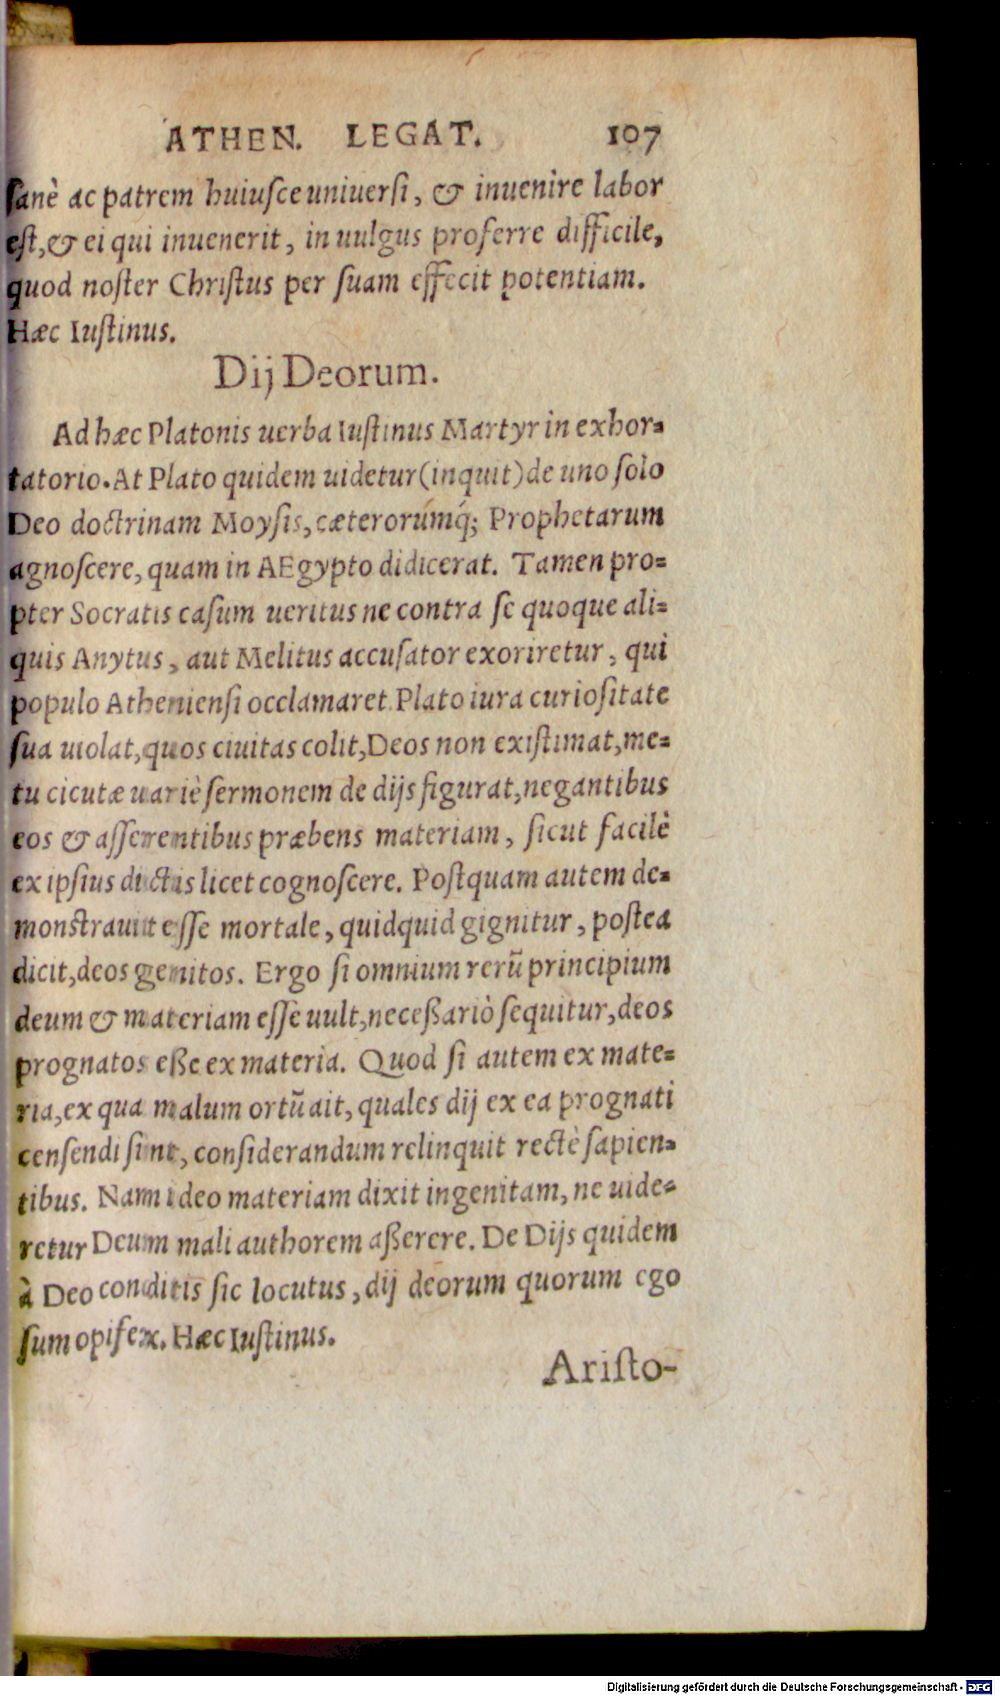 ATHEN. LEGAT. 107
sanè ac patrem huiusce uniuersi, & inuenire labor
est, & ei qui inuenerit, in uulgus proferre difficile,
quod noster Christus per suam effecit potentiam.
Hæc Iustinus.
Dij Deorum.
Ad hæc Platonis uerba Iustinus Martyr in exhor-
tatorio. At Plato quidem uidetur (inquit) de uno solo
Deo doctrinam Moysis, cæterorúmq́; Prophetarum
agnoscere, quam in AEgypto didicerat. Tamen pro-
pter Socratis casum ueritus ne contra se quoque ali-
quis Anytus, aut Melitus accusator exoriretur, qui
populo Atheniensi occlamaret. Plato iura curiositate
sua uiolat, quos ciuitas colit, Deos non existimat, me-
tu cicutæ uariè sermonem de dijs figurat, negantibus
eos & asserentibus præbens materiam, sicut facilè
ex ipsius dictis licet cognoscere. Postquam autem de-
monstrauit esse mortale, quidquid gignitur, postea
dicit, deos genitos. Ergo si omnium rerũ principium
deum & materiam esse uult, neceßariò sequitur, deos
prognatos eße ex materia. Quod si autem ex mate-
ria, ex qua malum ortũ ait, quales dij ex ea prognati
censendi sint, considerandum relinquit rectè sapien-
tibus. Nam ideo materiam dixit ingenitam, ne uide-
retur Deum mali authorem aßerere. De Dijs quidem
à Deo conditis sic locutus, dij deorum quorum ego
sum opifex. Hæc Iustinus.
Aristo-
Digitalisierung gefördert durch die Deutsche Forschungsgemeinschaft - DFG